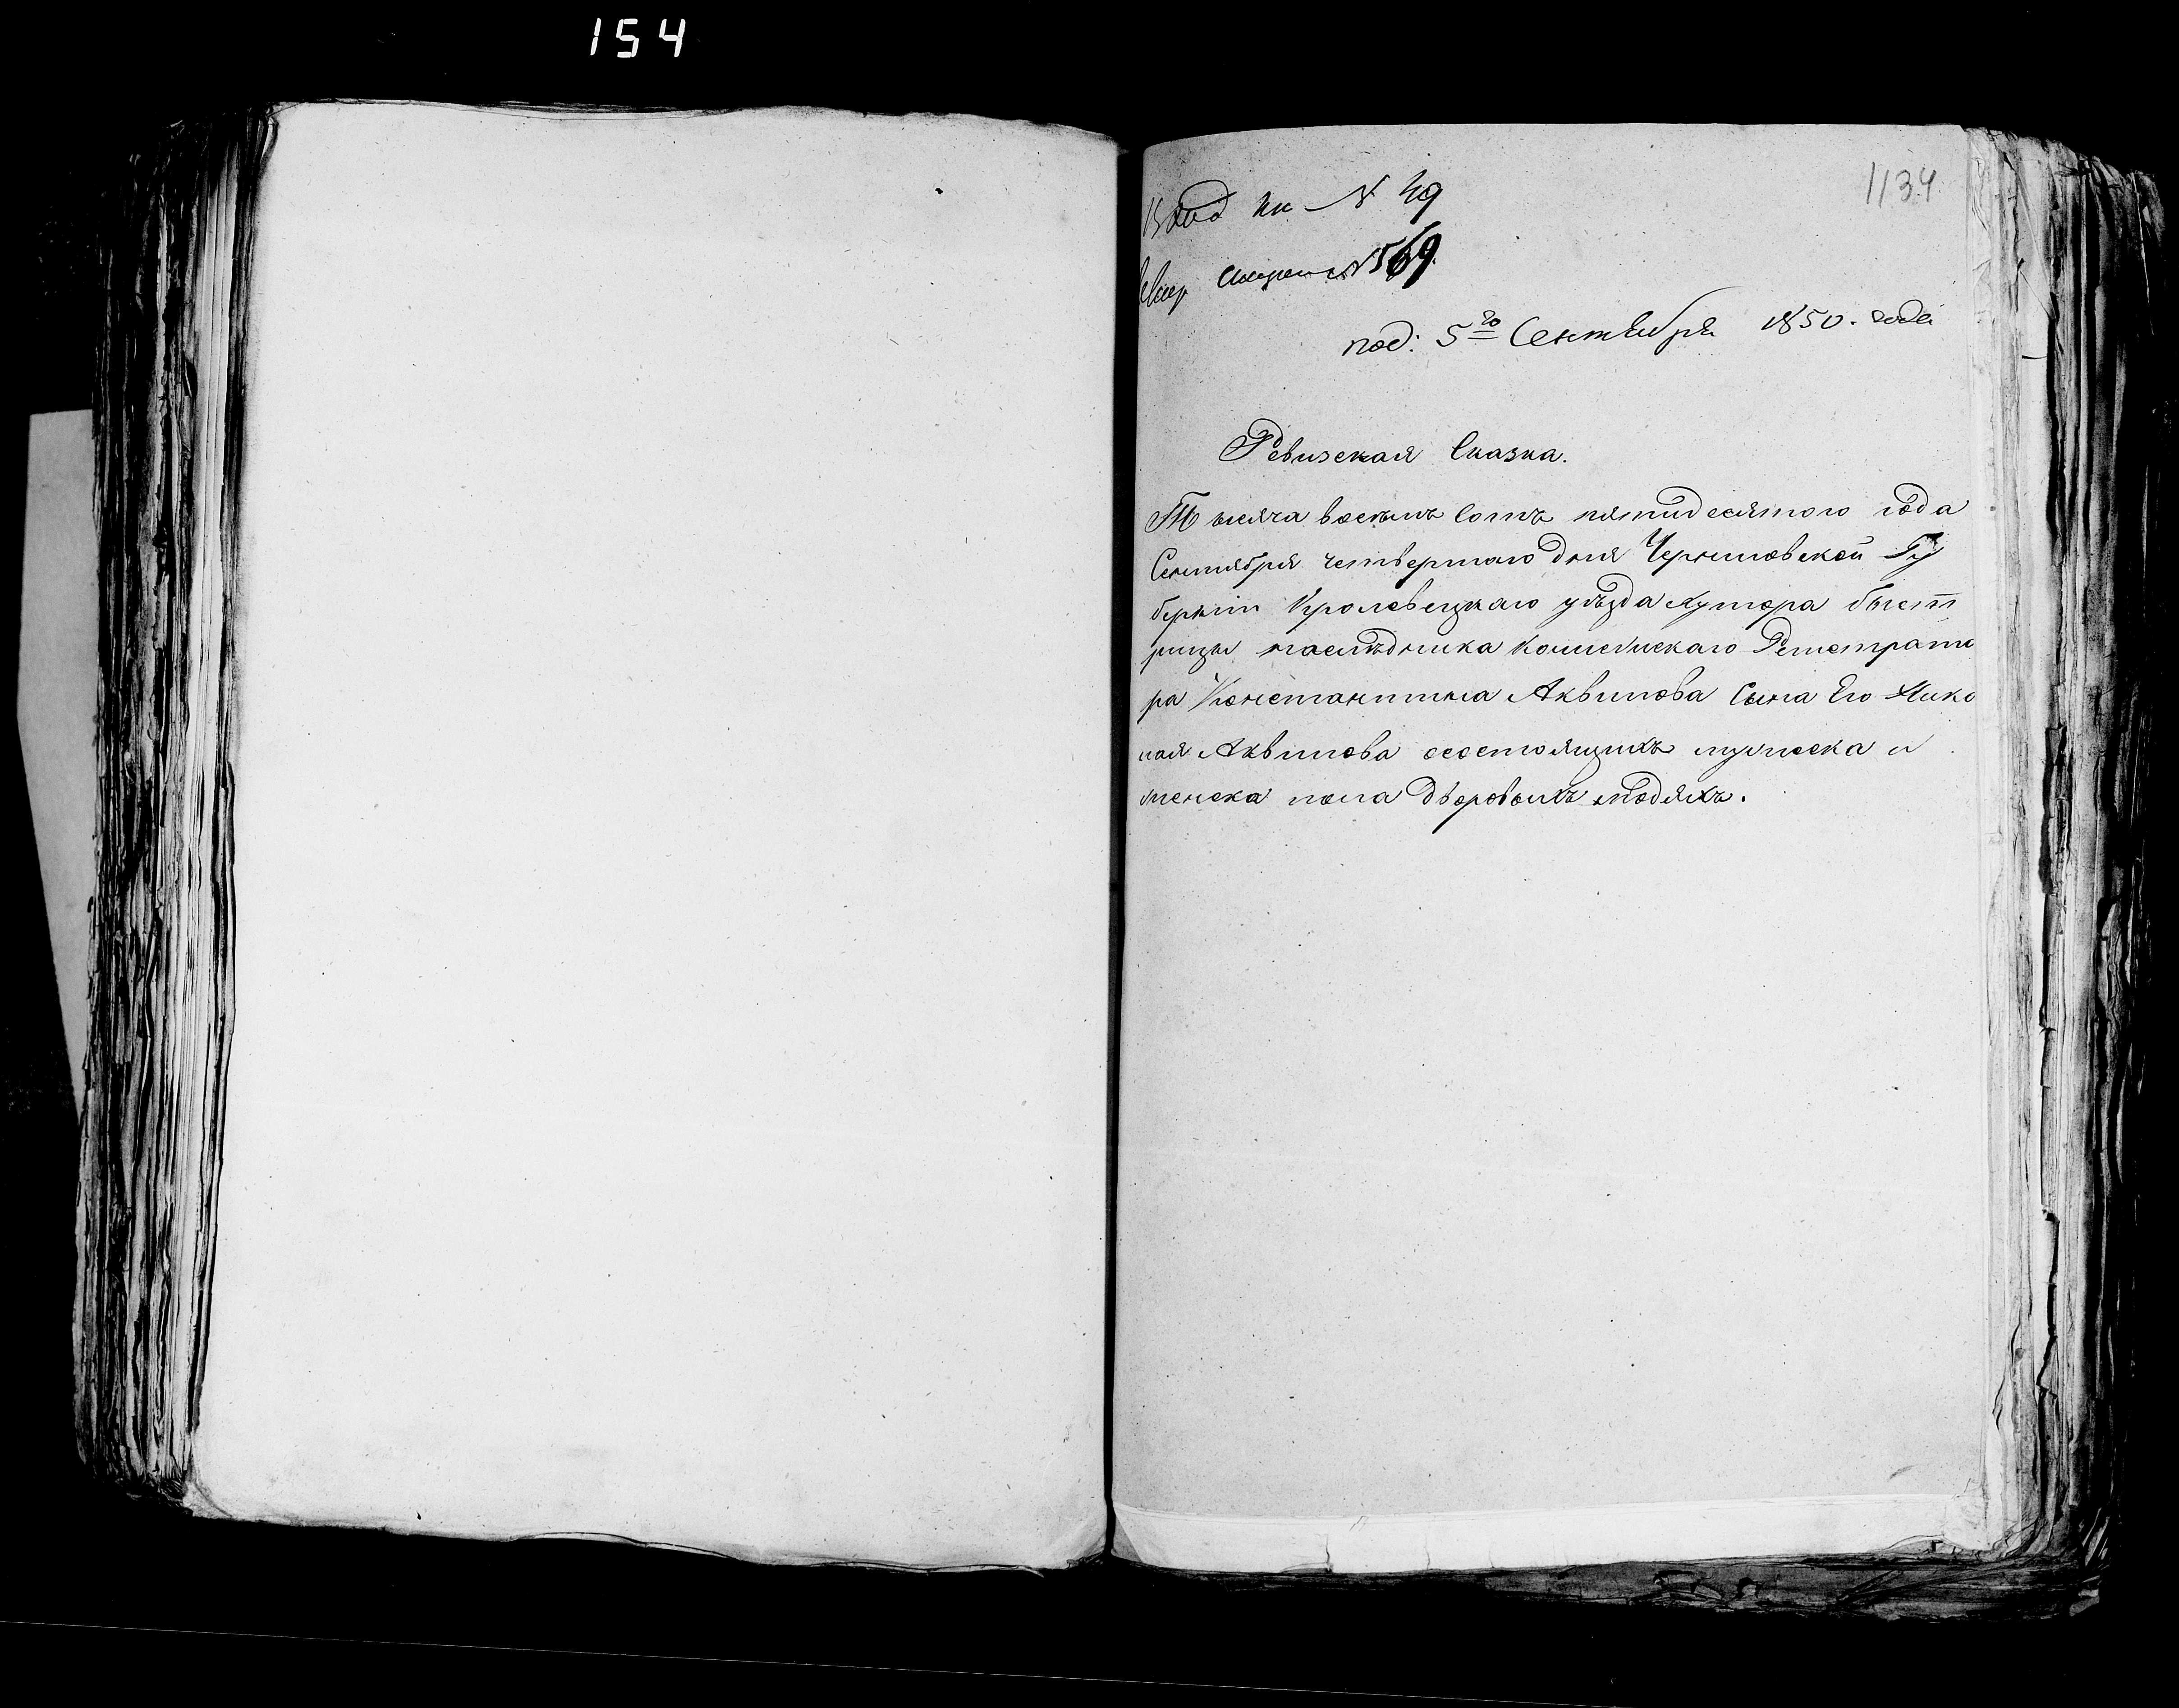 154
1134
Вход кн N 49
N 569
под: 5го Сентября 1850. года
Ревизская Сказка.
Тысяча восемь сотъ пятидесятого года
Сентября четвертаго дня Черниговской Гу
берніи Кролевецкаго уѣзда хутора быст
рицы наслѣдника Коллежскаго Регистрато
ра Константина Аквилова Сына Его Нико
лая Аквилова осостоящихъ мужеска и
женска пола дворовыхъ людяхъ.